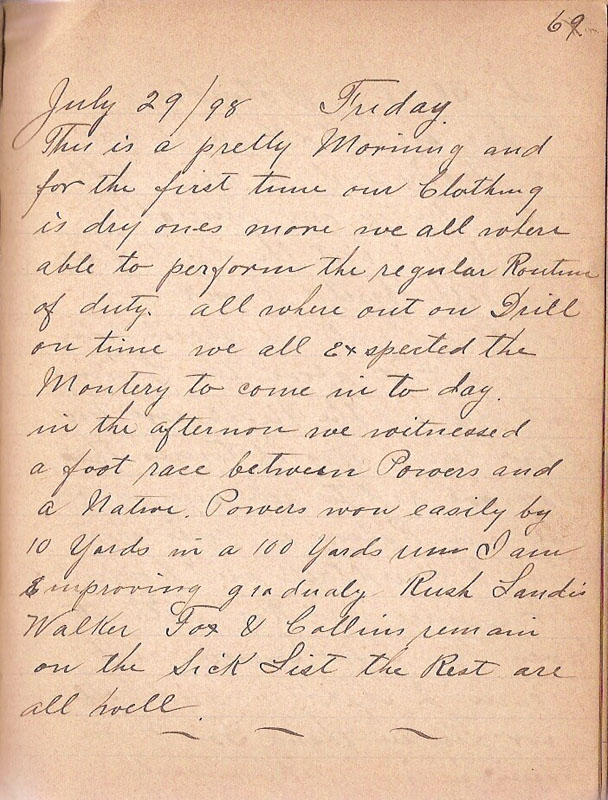 69
July 29/98 Friday.
This is a pretty Morning and
for the first time our Clothing
is dry ones more we all where
able to perform the regular Routine
of duty. all where out on Drill
on time we all Exspected the
Montery to come in to day.
in the afternon we witnessed
a foot race between Powers and
a Native. Powers won easily by
10 Yards in a 100 Yards run I am
Emproving gradualy Rush Landis
Walker Fox & Collins remain
on the Sick List the Rest are
all well.